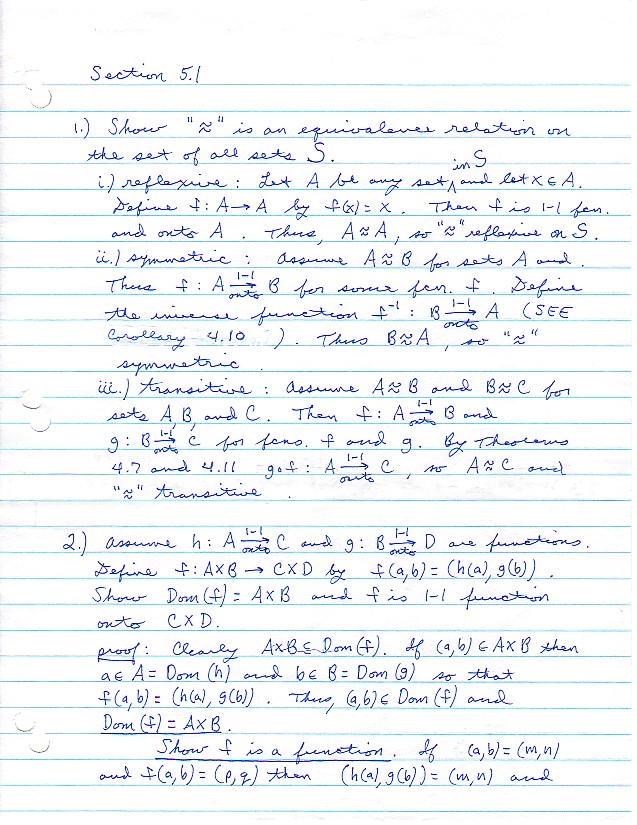 Section 5.1
1.) Show "≈" is an equivalence relation on
the set of all sets S.
i.) reflexive : Let A be any set, in S and let x ∈ A.
Define f: A→A by f(x) = x. Then f is 1-1 fcn.
and onto A. Thus, A≈A, so "≈" reflexive on S.
ii.) symmetric : Assume A≈B for sets A and.
Thus f: A 1-1→onto B for some fcn. f. Define
the inverse function f⁻¹ : B 1-1→onto A (SEE
Corollary 4.10 ). Thus B≈A, so "≈"
symmetric.
iii.) transitive : Assume A≈B and B≈C for
sets A, B, and C. Then f: A 1-1→onto B and
g: B 1-1→onto C for fcns. f and g. By Theorems
4.7 and 4.11 g∘f : A 1-1→onto C, so A≈C and
"≈" transitive.
2.) Assume h: A 1-1→onto C and g: B 1-1→onto D are functions.
Define f: A×B → C×D by f(a,b) = (h(a), g(b)).
Show Dom(f) = A×B and f is 1-1 function
onto C×D.
proof: Clearly A×B ⊆ Dom(f). If (a,b) ∈ A×B then
a ∈ A = Dom(h) and b ∈ B = Dom(g) so that
f(a,b) = (h(a), g(b)). Thus, (a,b) ∈ Dom(f) and
Dom(f) = A×B.
Show f is a function. If (a,b) = (m,n)
and f(a,b) = (p,q) then (h(a), g(b)) = (m,n) and